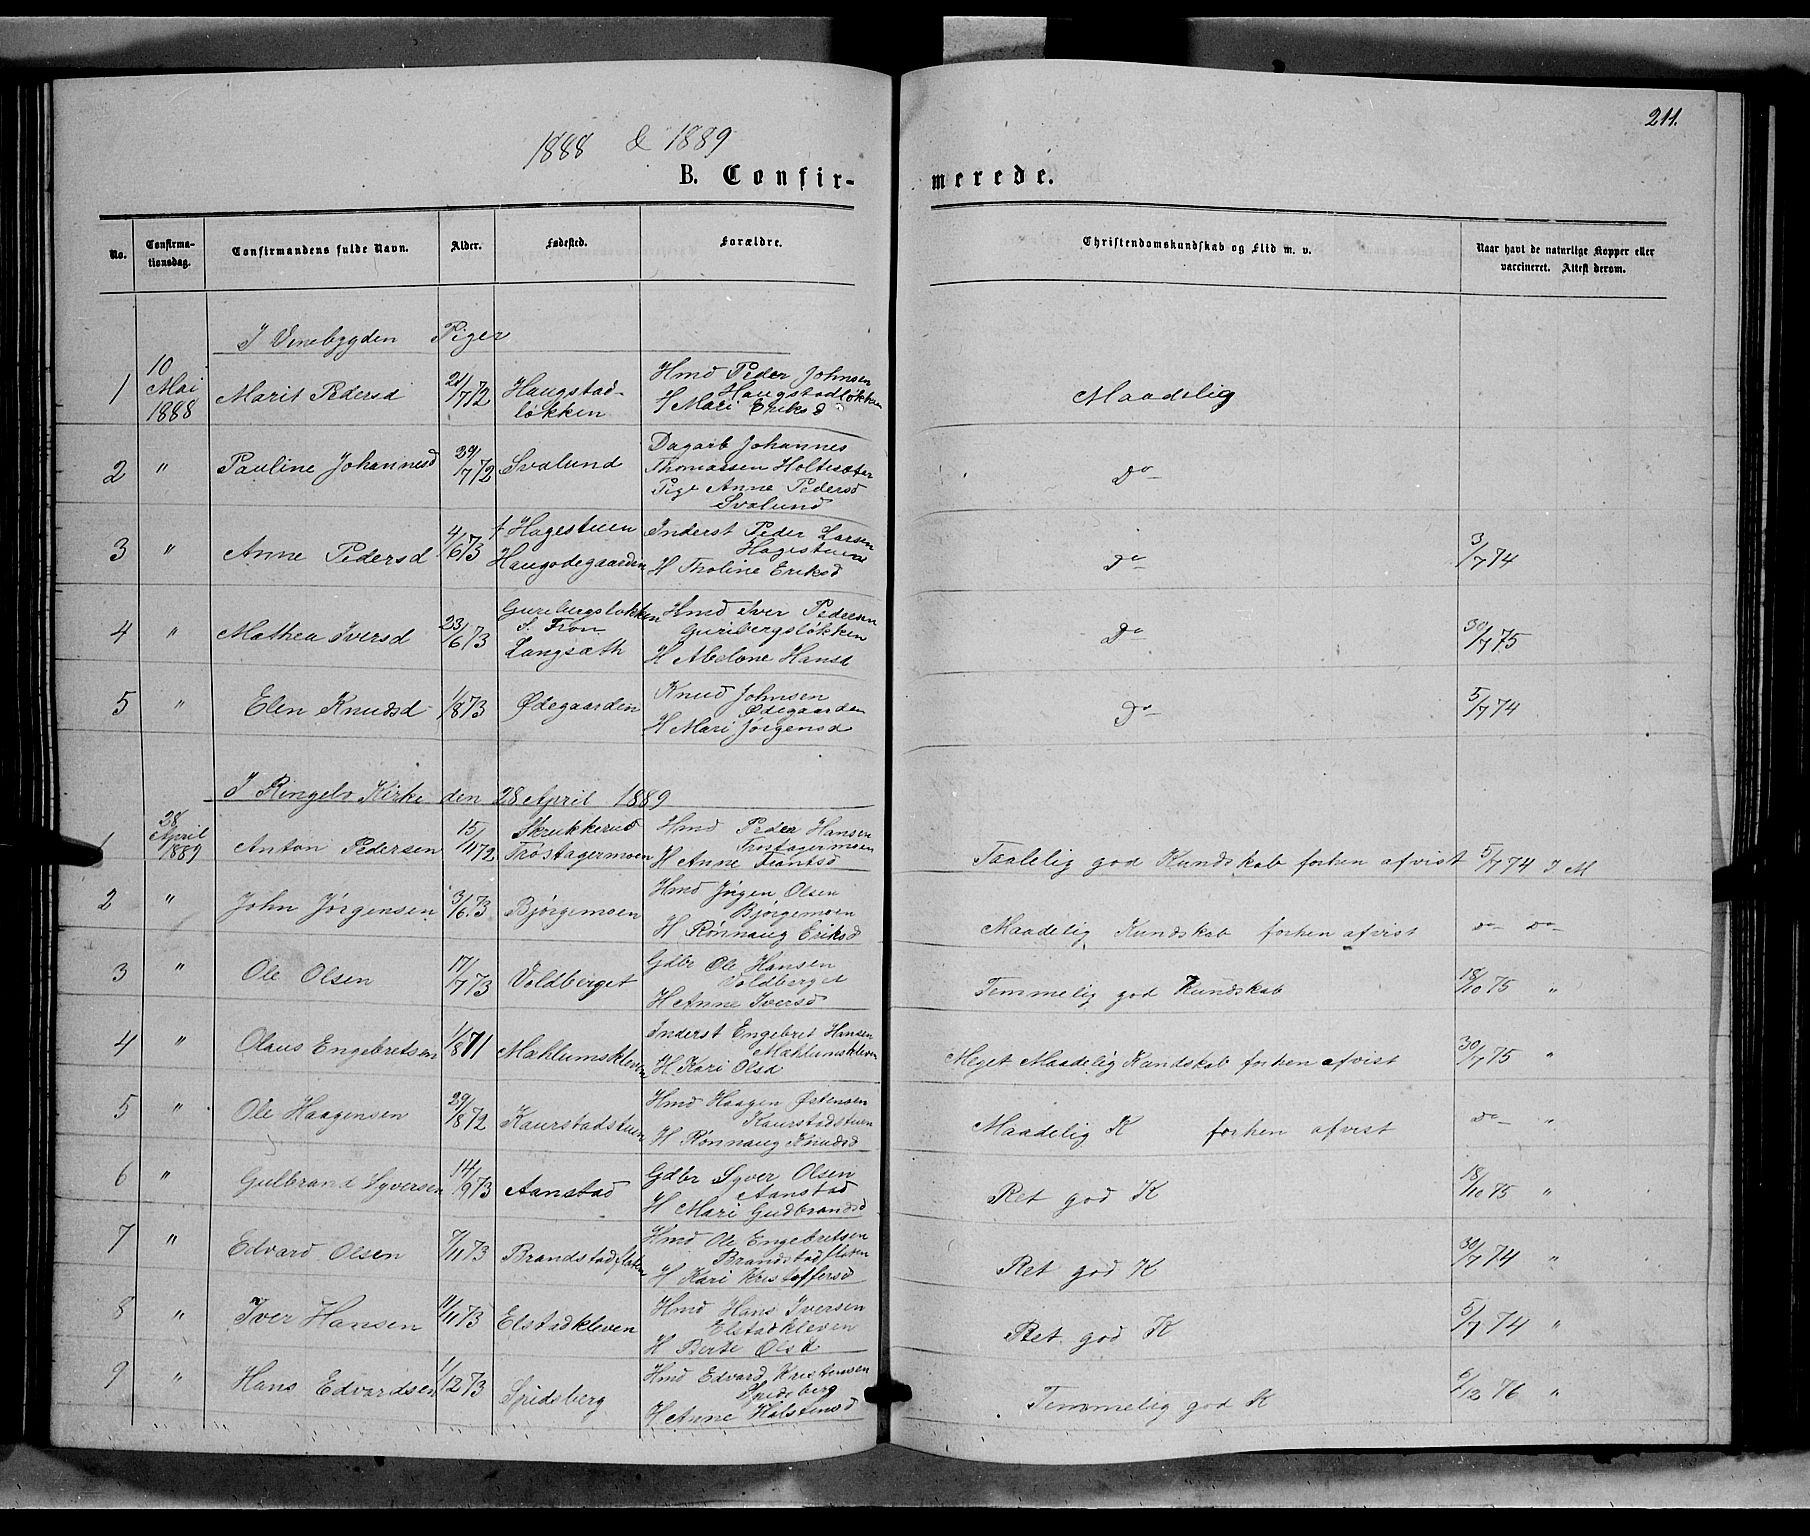 211.
1888 & 1889
B. Confirmerede.
No. | Confirmationsdag. | Confirmandens fulde Navn. | Alder. | Fødested. | Forældre. | Christendomskundskab og Flid m. v. | Naar havt de naturlige Kopper eller vaccineret. Attest derom.
I Venebygden Piger
1 | 10 Mai 1888 | Marit Pedersd | 21/7 72 | Haugstadløkken | Hmd Peder Johnsen Haugstadløkken H Mari Eriksd | Maadelig
2 | " | Pauline Johannesd | 29/7 72 | Svalund | Dagarb Johannes Thomassen Holtesæter Pige Anne Pedersd Svalund | Do
3 | " | Anne Pedersd | 4/6 73 | Hagestuen Haugodegaarden | Inderst Peder Larsen Hagestuen H Tholine Eriksd | Do | 3/7 74
4 | " | Mathea Iversd | 23/6 73 | Guribergsløkken S. Fron Langsæth | Hmd Iver Pedersen Guribergsløkken H Abelone Hansd | Do | 30/7 75
5 | " | Elen Knudsd | 1/8 73 | Ødegaarden | Knud Johnsen Ødegaarden H Mari Jørgensd | Do | 5/7 74
I Ringebo Kirke den 28 April 1889
1 | 28 April 1889 | Anton Pedersen | 15/11 72 | Skrukkerud Trøstagermoen | Hmd Peder Hansen Trøstagermoen H Anne Frantsd | Taalelig god Kundskab forhen afvist | 5/7 74 I M
2 | " | John Jørgensen | 3/6 73 | Bjørgemoen | Hmd Jørgen Olsen Bjørgemoen H Rønnaug Eriksd | Maadelig Kundskab forhen afvist | do do
3 | " | Ole Olsen | 17/7 73 | Voldberget | Gdbr Ole Hansen Voldberget H Anne Iversd | Temmelig god Kundskab | 18/10 75 "
4 | " | Olaus Engebretsen | 1/8 71 | Mæhlumskleven | Inderst Engebret Hansen Mæhlumskleven H Kari Olsd | Meget Maadelig Kundskab forhen afvist | 30/7 75 "
5 | " | Ole Haagensen | 29/8 72 | Kaurstadstuen | Hmd Haagen Østensen Kaurstadstuen H Rønnaug Knudsd | Maadelig K forhen afvist | do "
6 | " | Gulbrand Syversen | 14/9 73 | Aanstad | Gdbr Syver Olsen Aanstad H Mari Gudbrandsd | Ret god K | 18/10 75 "
7 | " | Edvard Olsen | 7/11 73 | Brandstadflaten | Hmd Ole Engebretsen Brandstadflaten H Kari Kristoffersd | Ret god K | 30/7 74 "
8 | " | Iver Hansen | 11/11 73 | Elstadkleven | Hmd Hans Iversen Elstadkleven H Berte Olsd | Ret god K | 5/7 74 "
9 | " | Hans Edvardsen | 1/12 73 | Spidsberg | Hmd Edvard Kristensen Spidsberg H Anne Halstensd | Temmelig god K | 6/12 76 "